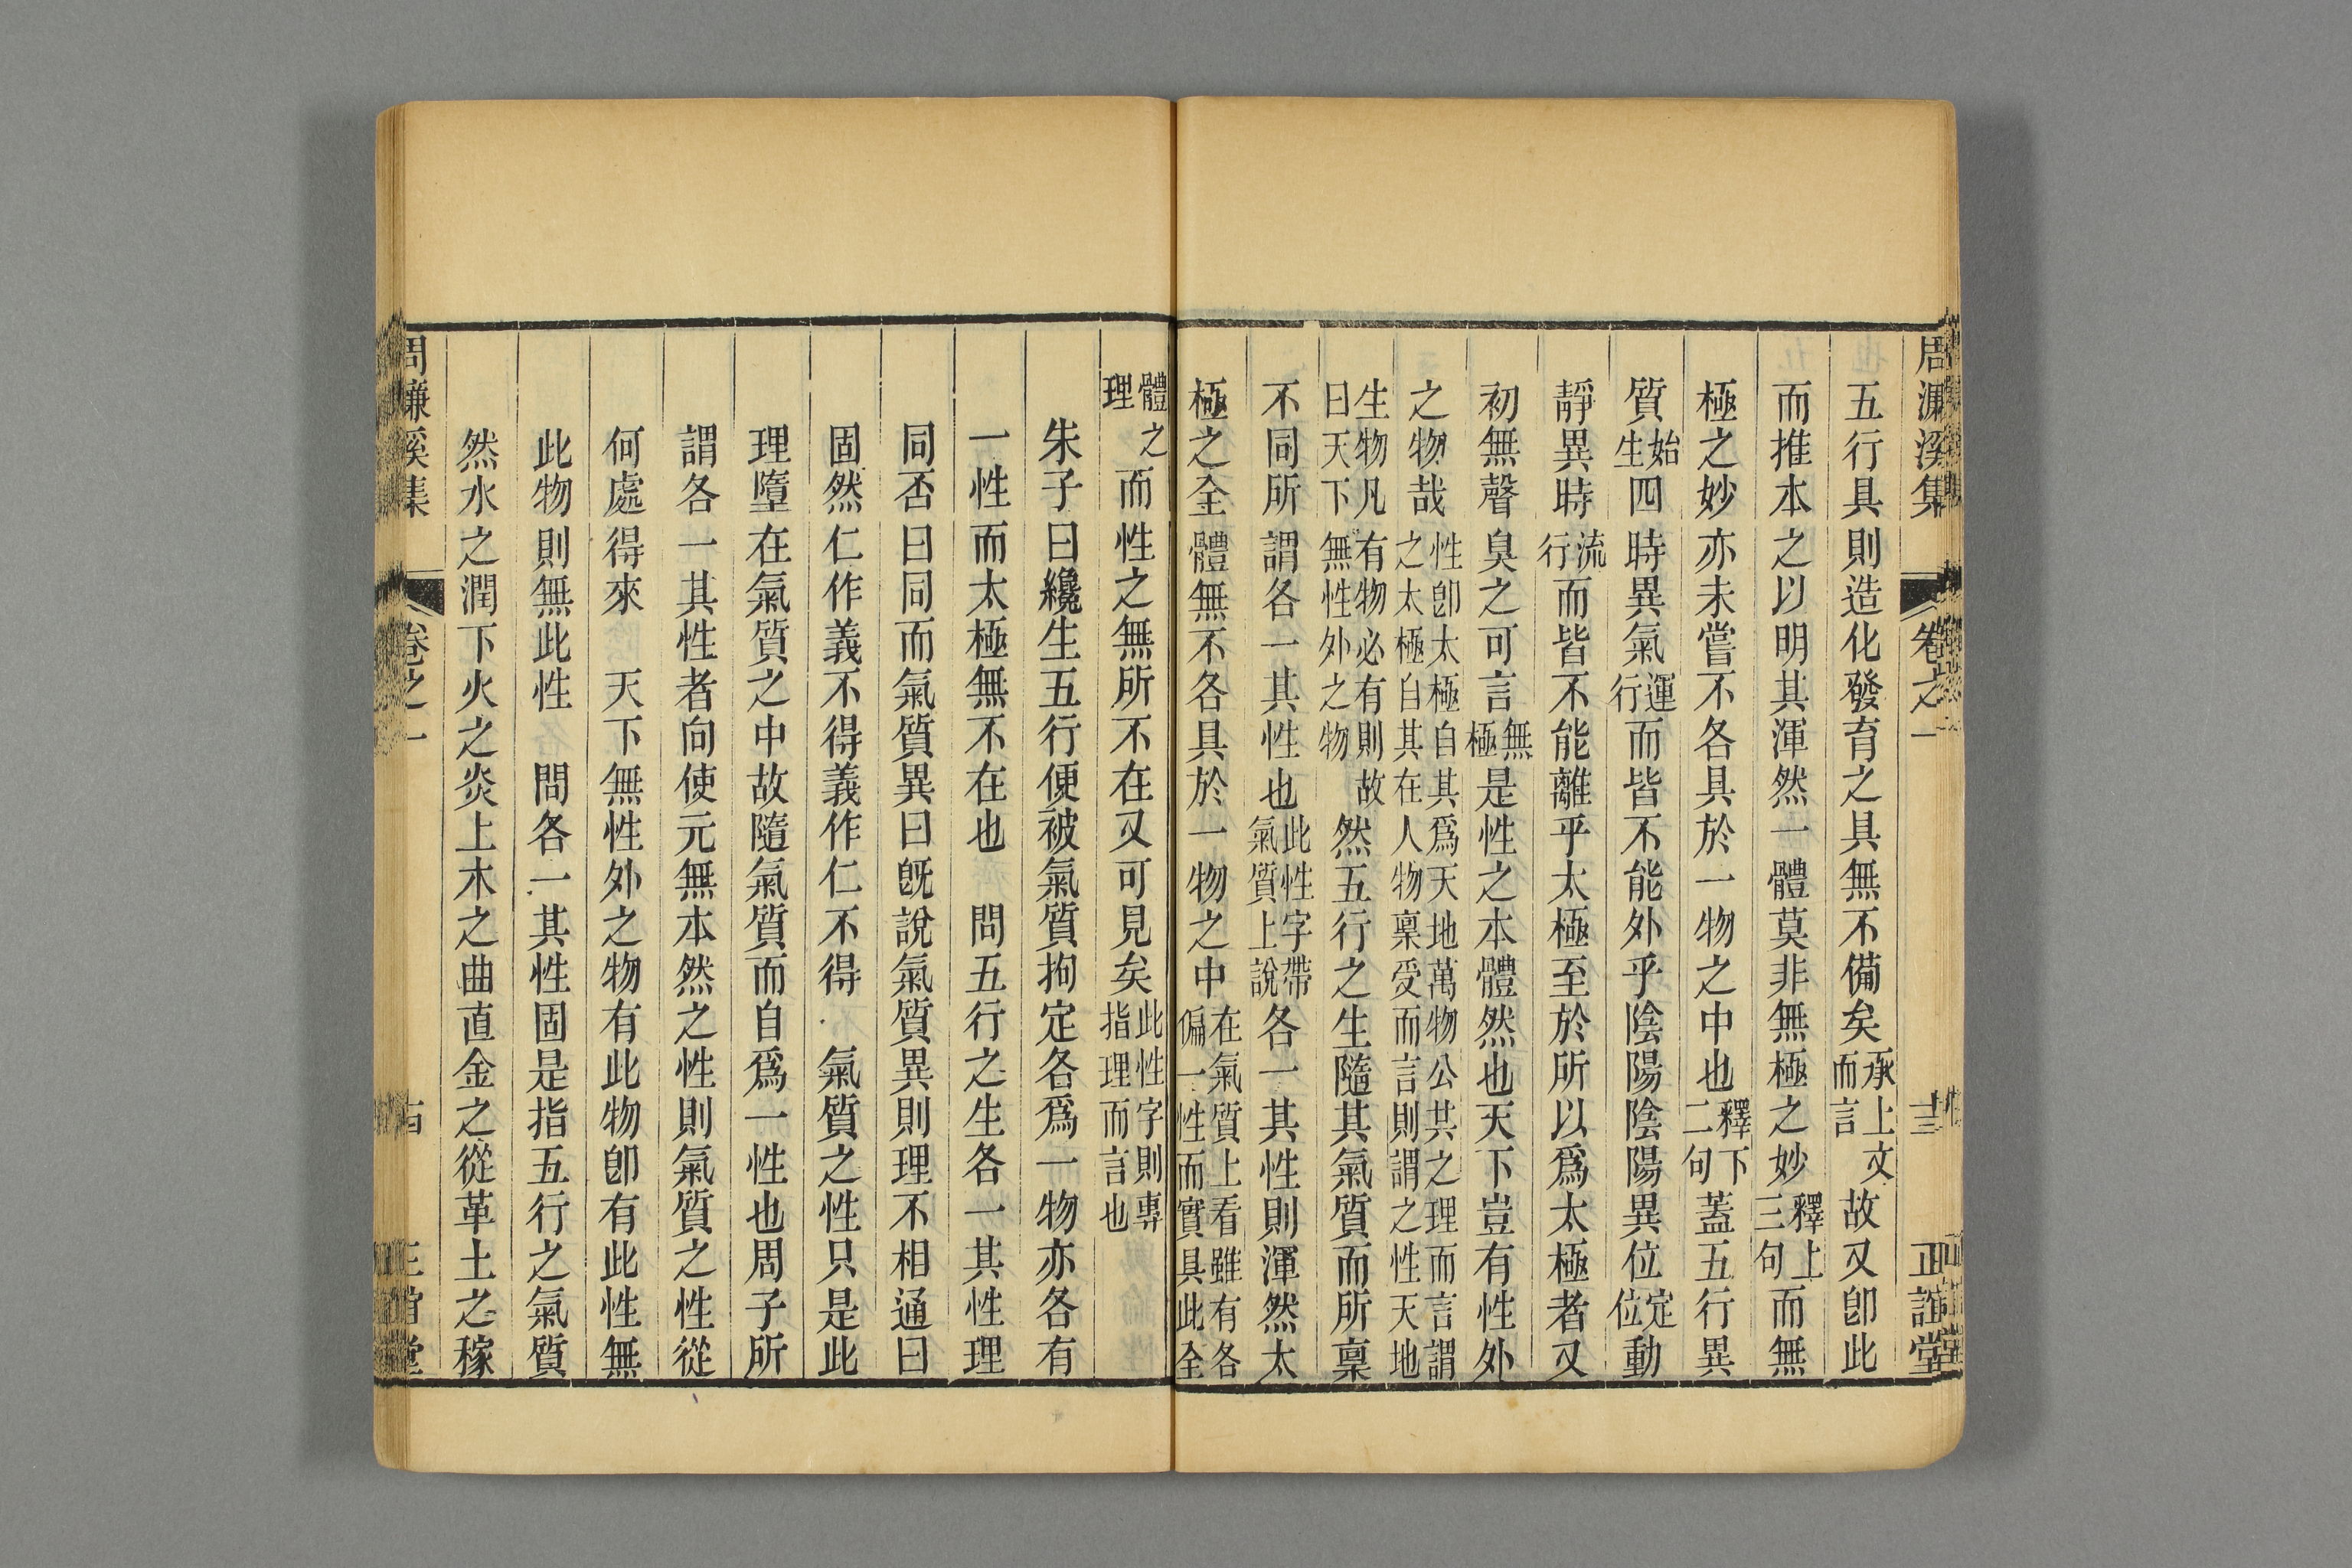 周濂溪集 卷之一 十三 正誼堂
五行具則造化發育之具無不備矣承上文而言故又卽此
而推本之以明其渾然一體莫非無極之妙釋上三句而無
極之妙亦未嘗不各具於一物之中也釋下二句蓋五行異
質始生四時異氣運行而皆不能外乎陰陽陰陽異位定位動
靜異時流行而皆不能離乎太極至於所以爲太極者又
初無聲臭之可言無極是性之本體然也天下豈有性外
之物哉性卽太極自其爲天地萬物公共之理而言謂之太極自其在人物稟受而言則謂之性天地
生物凡有物必有則故曰天下無性外之物然五行之生隨其氣質而所稟
不同所謂各一其性也此性字帶氣質上說各一其性則渾然太
極之全體無不各具於一物之中在氣質上看雖有各偏一性而實具此全
體之理而性之無所不在又可見矣此性字則專指理而言也
朱子曰纔生五行便被氣質拘定各爲一物亦各有
一性而太極無不在也 問五行之生各一其性理
同否曰同而氣質異曰旣說氣質異則理不相通曰
固然仁作義不得義作仁不得 氣質之性只是此
理墮在氣質之中故隨氣質而自爲一性也周子所
謂各一其性者向使元無本然之性則氣質之性從
何處得來 天下無性外之物有此物卽有此性無
此物則無此性 問各一其性固是指五行之氣質
然水之潤下火之炎上木之曲直金之從革土之稼
周濂溪集 卷之一 十四 正誼堂